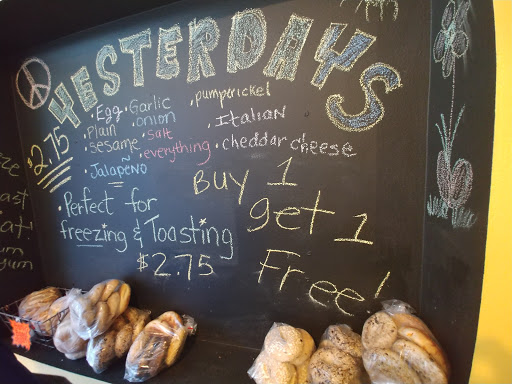 YESTERDAYS
$2.75
• Egg • Garlic • pumperickel
• plain • onion • Italian
• sesame • salt • cheddar cheese
• everything
• Jalapeño
Buy 1
get 1
Free!
• Perfect for
freezing & Toasting
$2.75